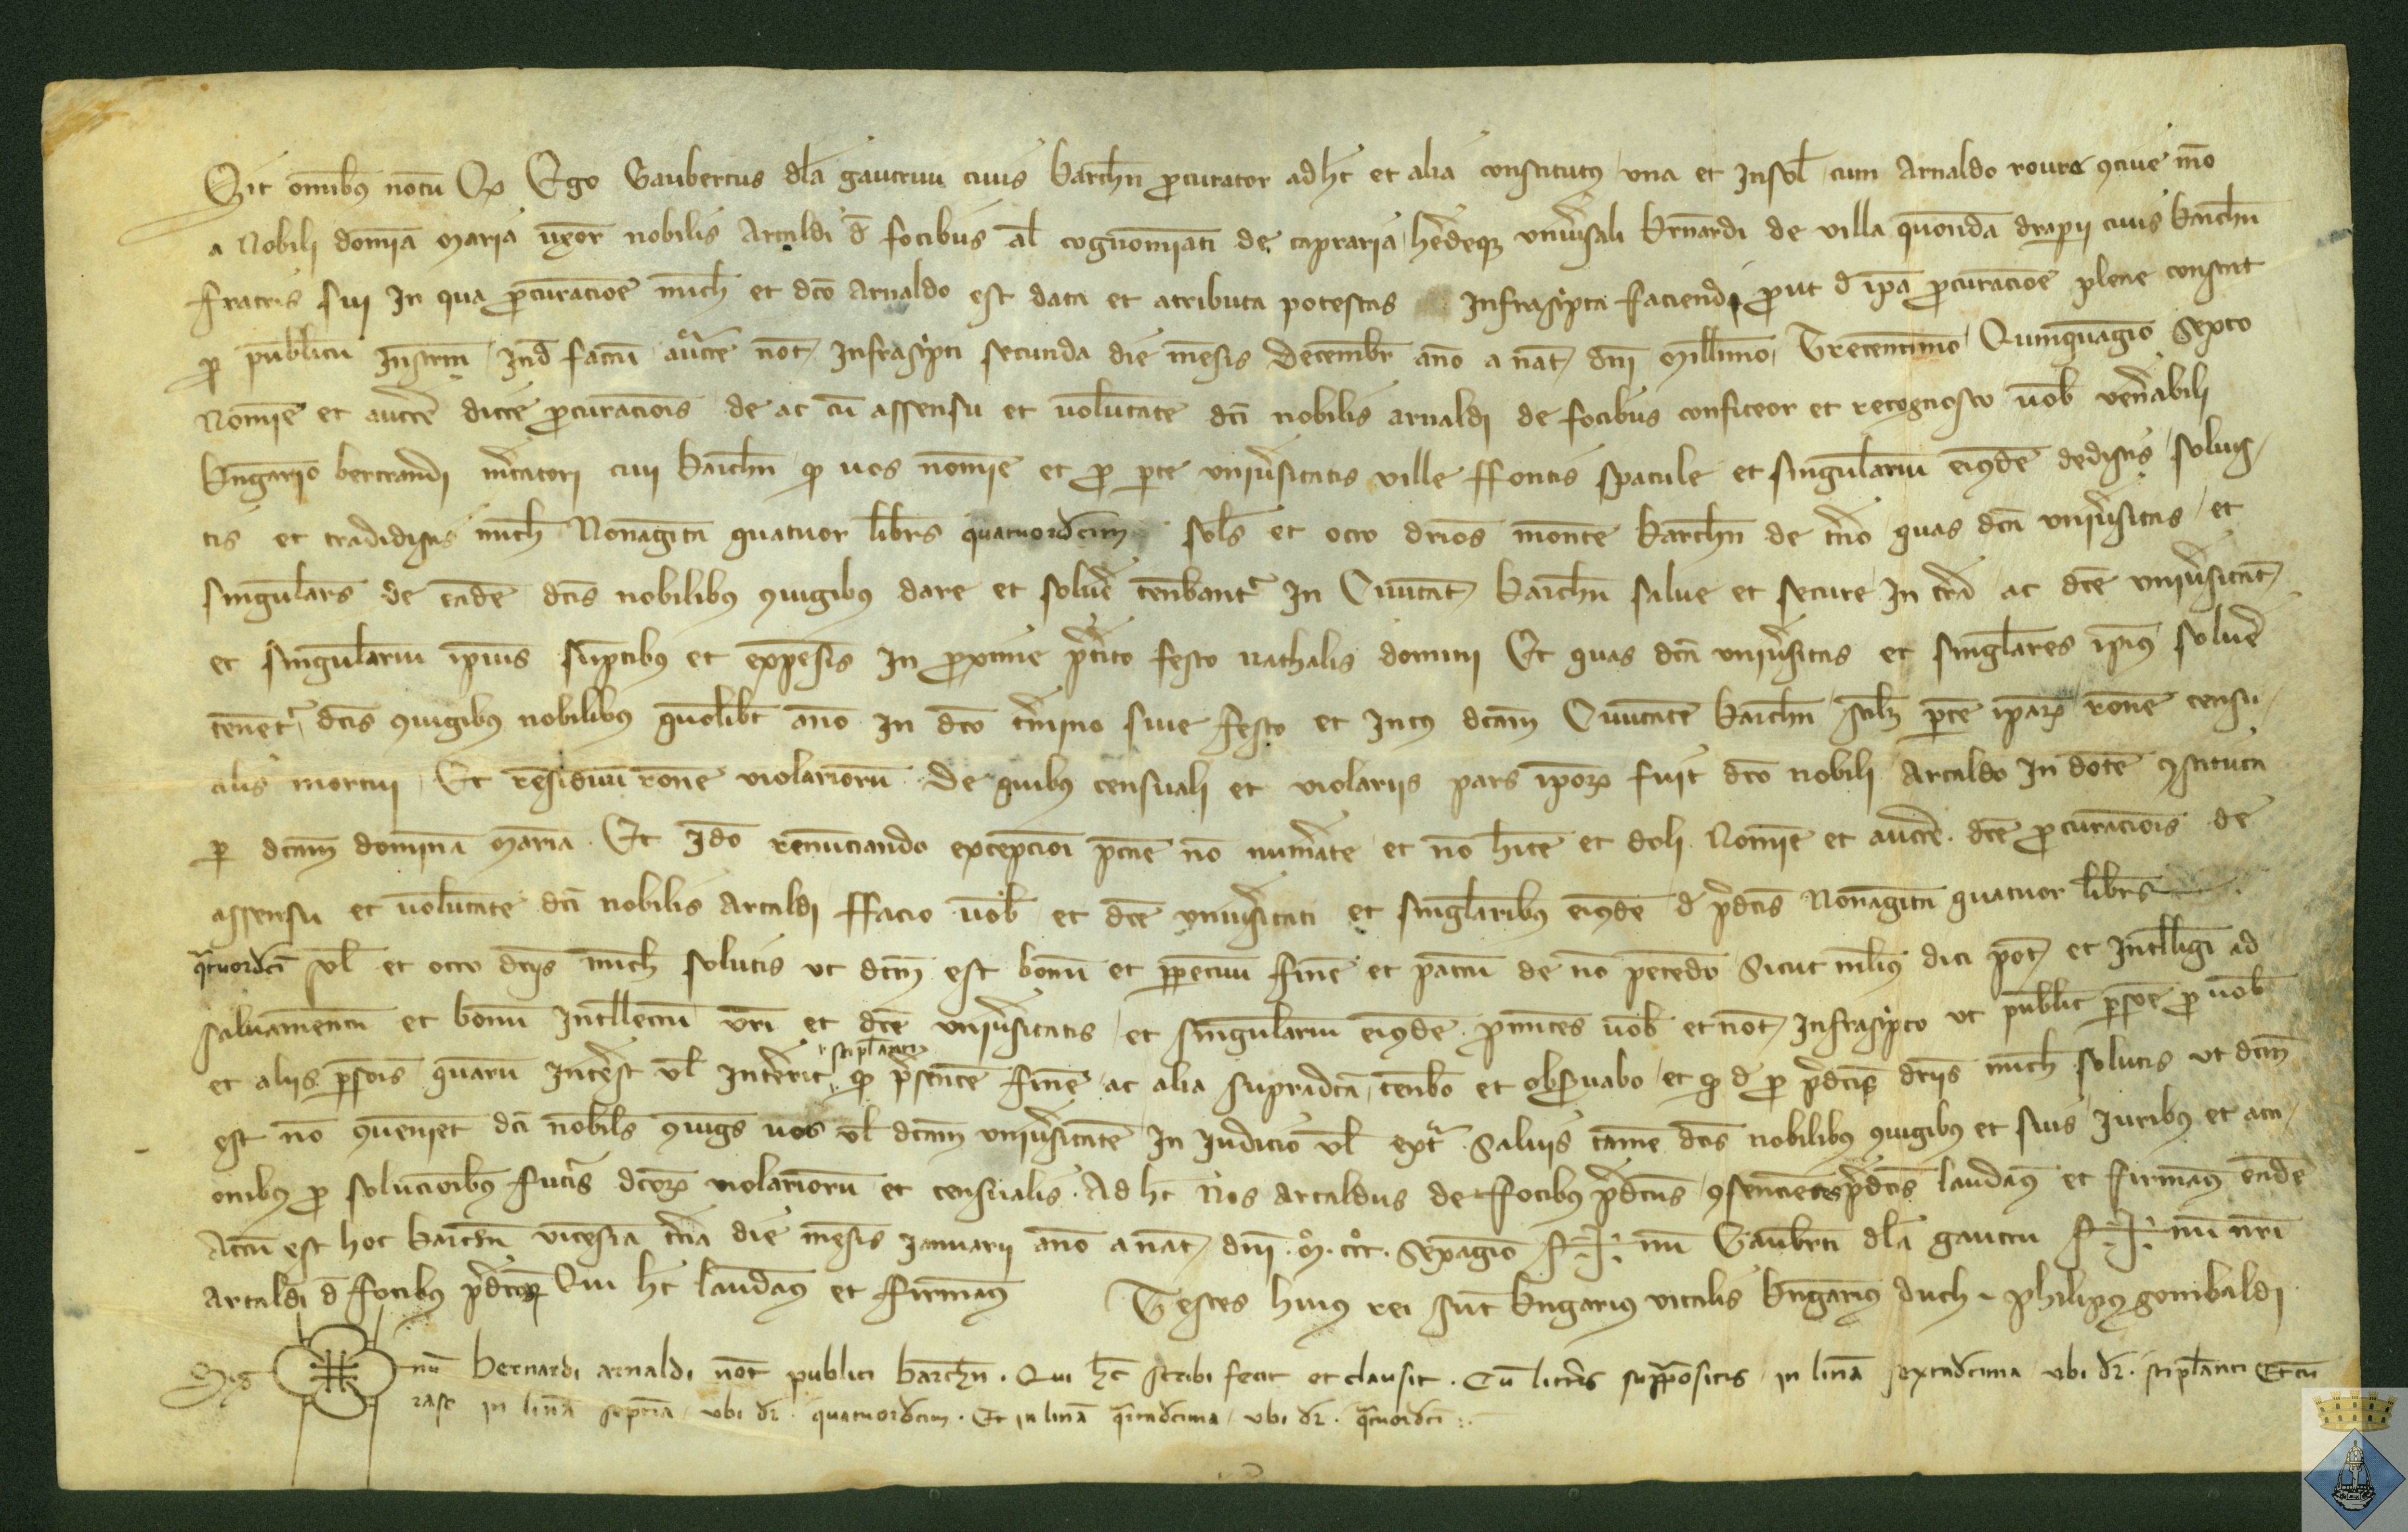 Sit omnibus notum Qd Ego Gaubertus dla gautruu civis barchn procurator ad hec et alia constitutus una et insol cum Arnaldo roure concive meo
a Nobili domina Maria uxor nobilis Artaldi de focibus al cognominati de capraria heredeque universali bernardi de villa quondam draperii civis barchn
fratris sui In qua procuracione michi et dco Arnaldo est data et atributa potestas infrascripta faciendi prout de ipa procuracione plene constat
per publicum instrm inde factum auctte not infrascripti secunda die mensis decembr anno a nat dni Millimo Trecentimo Quinquagio Sexto
Nomine et auctte dicte procuracionis de ac cum assensu et voluntate dci nobilis arnaldi de focibus confiteor et recognosco vob venerabili
bngario bertrandi mercatori civi barchn qd vos nomine et pro parte universitatis ville ffontis spatule et singularium eiusdem dedistis solvis
tis et tradidistis michi Nonaginta quatuor libras quatuordecim sols et octo drios monete barchn de terno quas dca universitas et
singulares de eadem dcis nobilibus coniugibus dare et solvere tenebantur in Civitat barchn salve et secure In terra ac dce universitat
et singularium ipsius sumptibus et expensis in proxime preterito festo nathalis domini Et quas dca universitas et singlares ipius solvere
tenentur dcis coniugibus nobilibus quolibet anno in dco termino sive festo et intus dcam Civitatem barchn scilicet parte ipar racione censu
alis mortui Et residuum racione violariorum De quibus censuali et violariis pars ipor fuit dco nobili Artaldo in dotem constituta
per dcam dominam Mariam Et Ideo renunciando excepcioni pecunie non numerate et non habite et doli Nomine et auctte dce procuracionis de
assensu et voluntate dci nobilis Artaldi ffacio vob et dce universitati et singlaribus eiusdem de predcis Nonaginta quatuor libris
quatuordeci sol et octo drijs michi solutis ut dcm est bonum et perpetuum finem et pactum de non petendo Sicut melius dici pot et intelligi ad
salvamentum et bonum intellectum vrm et dce universitatis et singularium eiusdem promittens vob et not infrascripto ut public persone pro vob
et aliis personis quarum interest vel intererit stiplanti qd presentem finem ac alia supradcta tenebo et observabo et qd de pro predcis drijs michi solutis ut dcm
est non convenient dci nobiles coniuges vos vel dcam universitatem in iudicio vel extra Salvis tamen dcis nobilibus coniugibus et suis iuribus et acci
onibus pro solucionibus futuris dcor violariorum et censualis Ad hec Nos Artaldus de ffocibus predctus consencientes predcis laudamus et firmamus eadem
Actum est hoc barchn vicesima tercia die mensis januarii anno a nat dni M CCC Sexagio S num Gauberti dla gautru S num nri
Artaldi de focibus predcti Qui hec laudamus et firmamus Testes huius rei sunt bngarius vitalis bngarius duch philipus gombaldi
Sig num bernardi arnaldi not publici barchn Qui hec scribi fecit et clausit Cum literis suprapositis in linea sextadecima ubi dr stiplanti Et cum
raso in linea septima ubi dr quatuordecim Et in linea quartadecima ubi dr quatuordeci